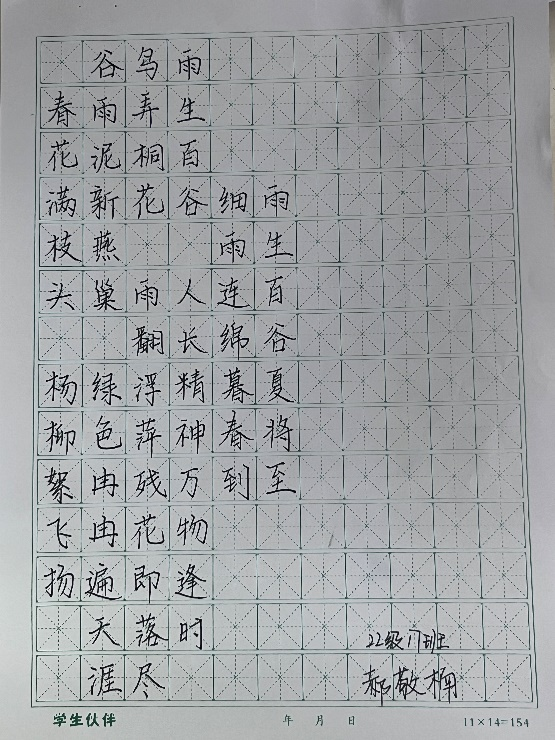 雨生百谷夏将至
细雨连绵暮春到
雨生百谷 人长精神万物逢时
鸟弄桐花 雨翻浮萍残花即落尽
谷雨泥新燕巢 绿色冉冉遍天涯
春花满枝头 杨柳絮飞扬
22级 班
郝敬楠
学生伙伴 年 月 日 11×14=154